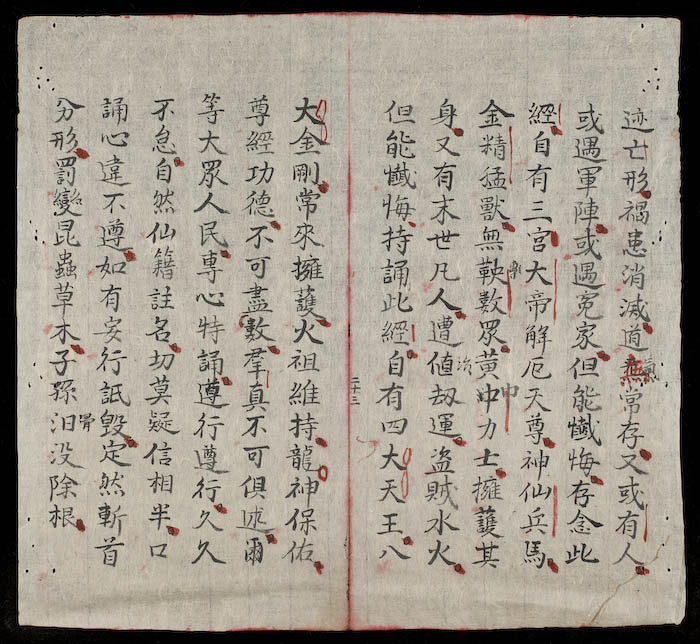 迹亡形禍患消滅道炁常存又或有人
或遇軍陣或遇冤家但能懺悔存念此
經自有三宮大帝解厄天尊神仙兵馬
金精猛獸無鞅數眾黃巾力士擁護其
身又有末世凡人遭值劫運盜賊水火
但能懺悔持誦此經自有四大天王八
二十三
大金剛常來擁護火祖維持龍神保佑
尊經功德不可盡數羣真不可俱述爾
等大眾人民專心特誦遵行遵行久久
不怠自然仙籍註名切莫疑信相半口
誦心違不遵如有妄行詆毀定然斬首
分形罰變昆蟲草木子孫汩没除根